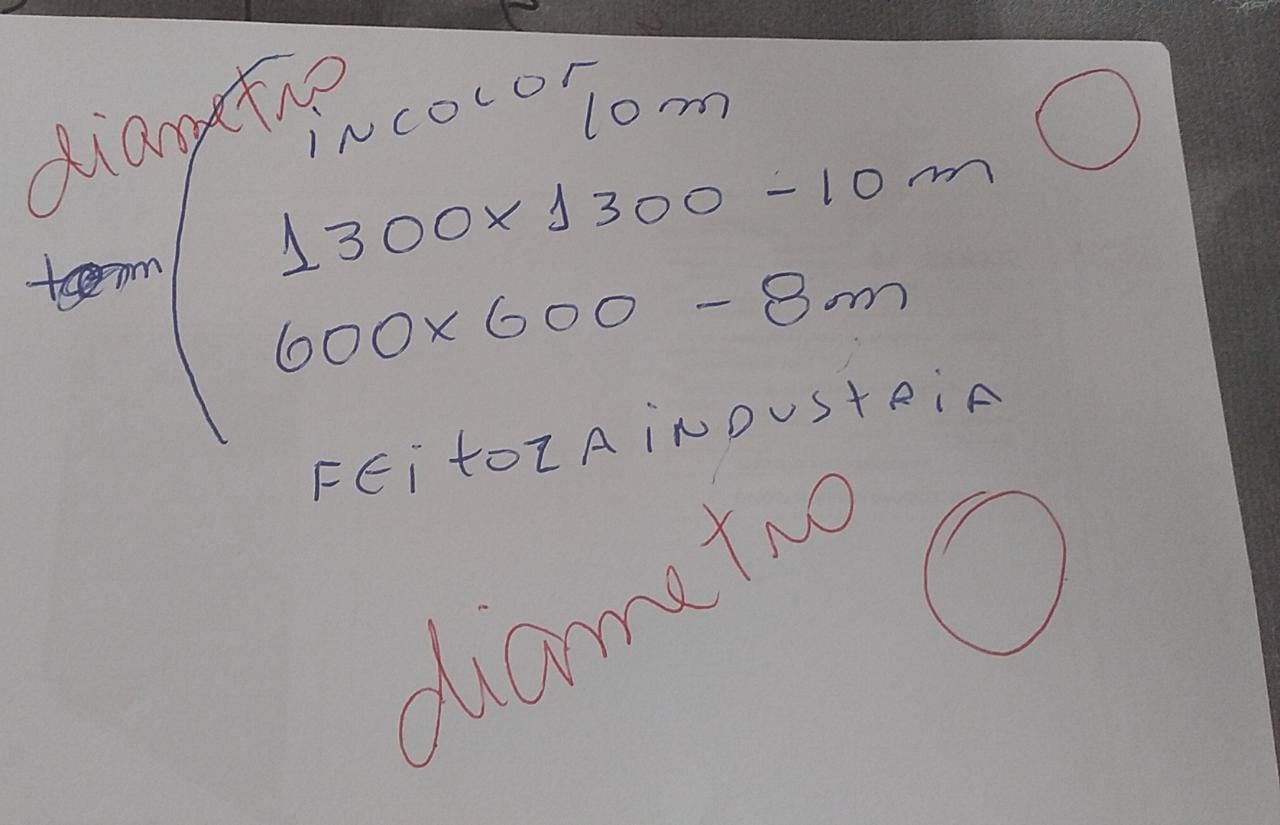 diametro
incolor 10 m
1300x1300 - 10 m
tem
600x600 - 8 m
FEitOZA iNDUStRiA
diametro